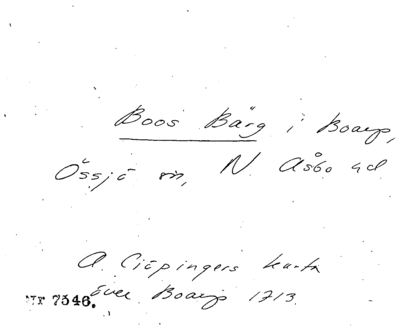 Boos Bärg i Boarp,
Össjö sn, N. Åsbo hd
A. Ciöpingers karta
över Boarp 1713.
NF 7346.